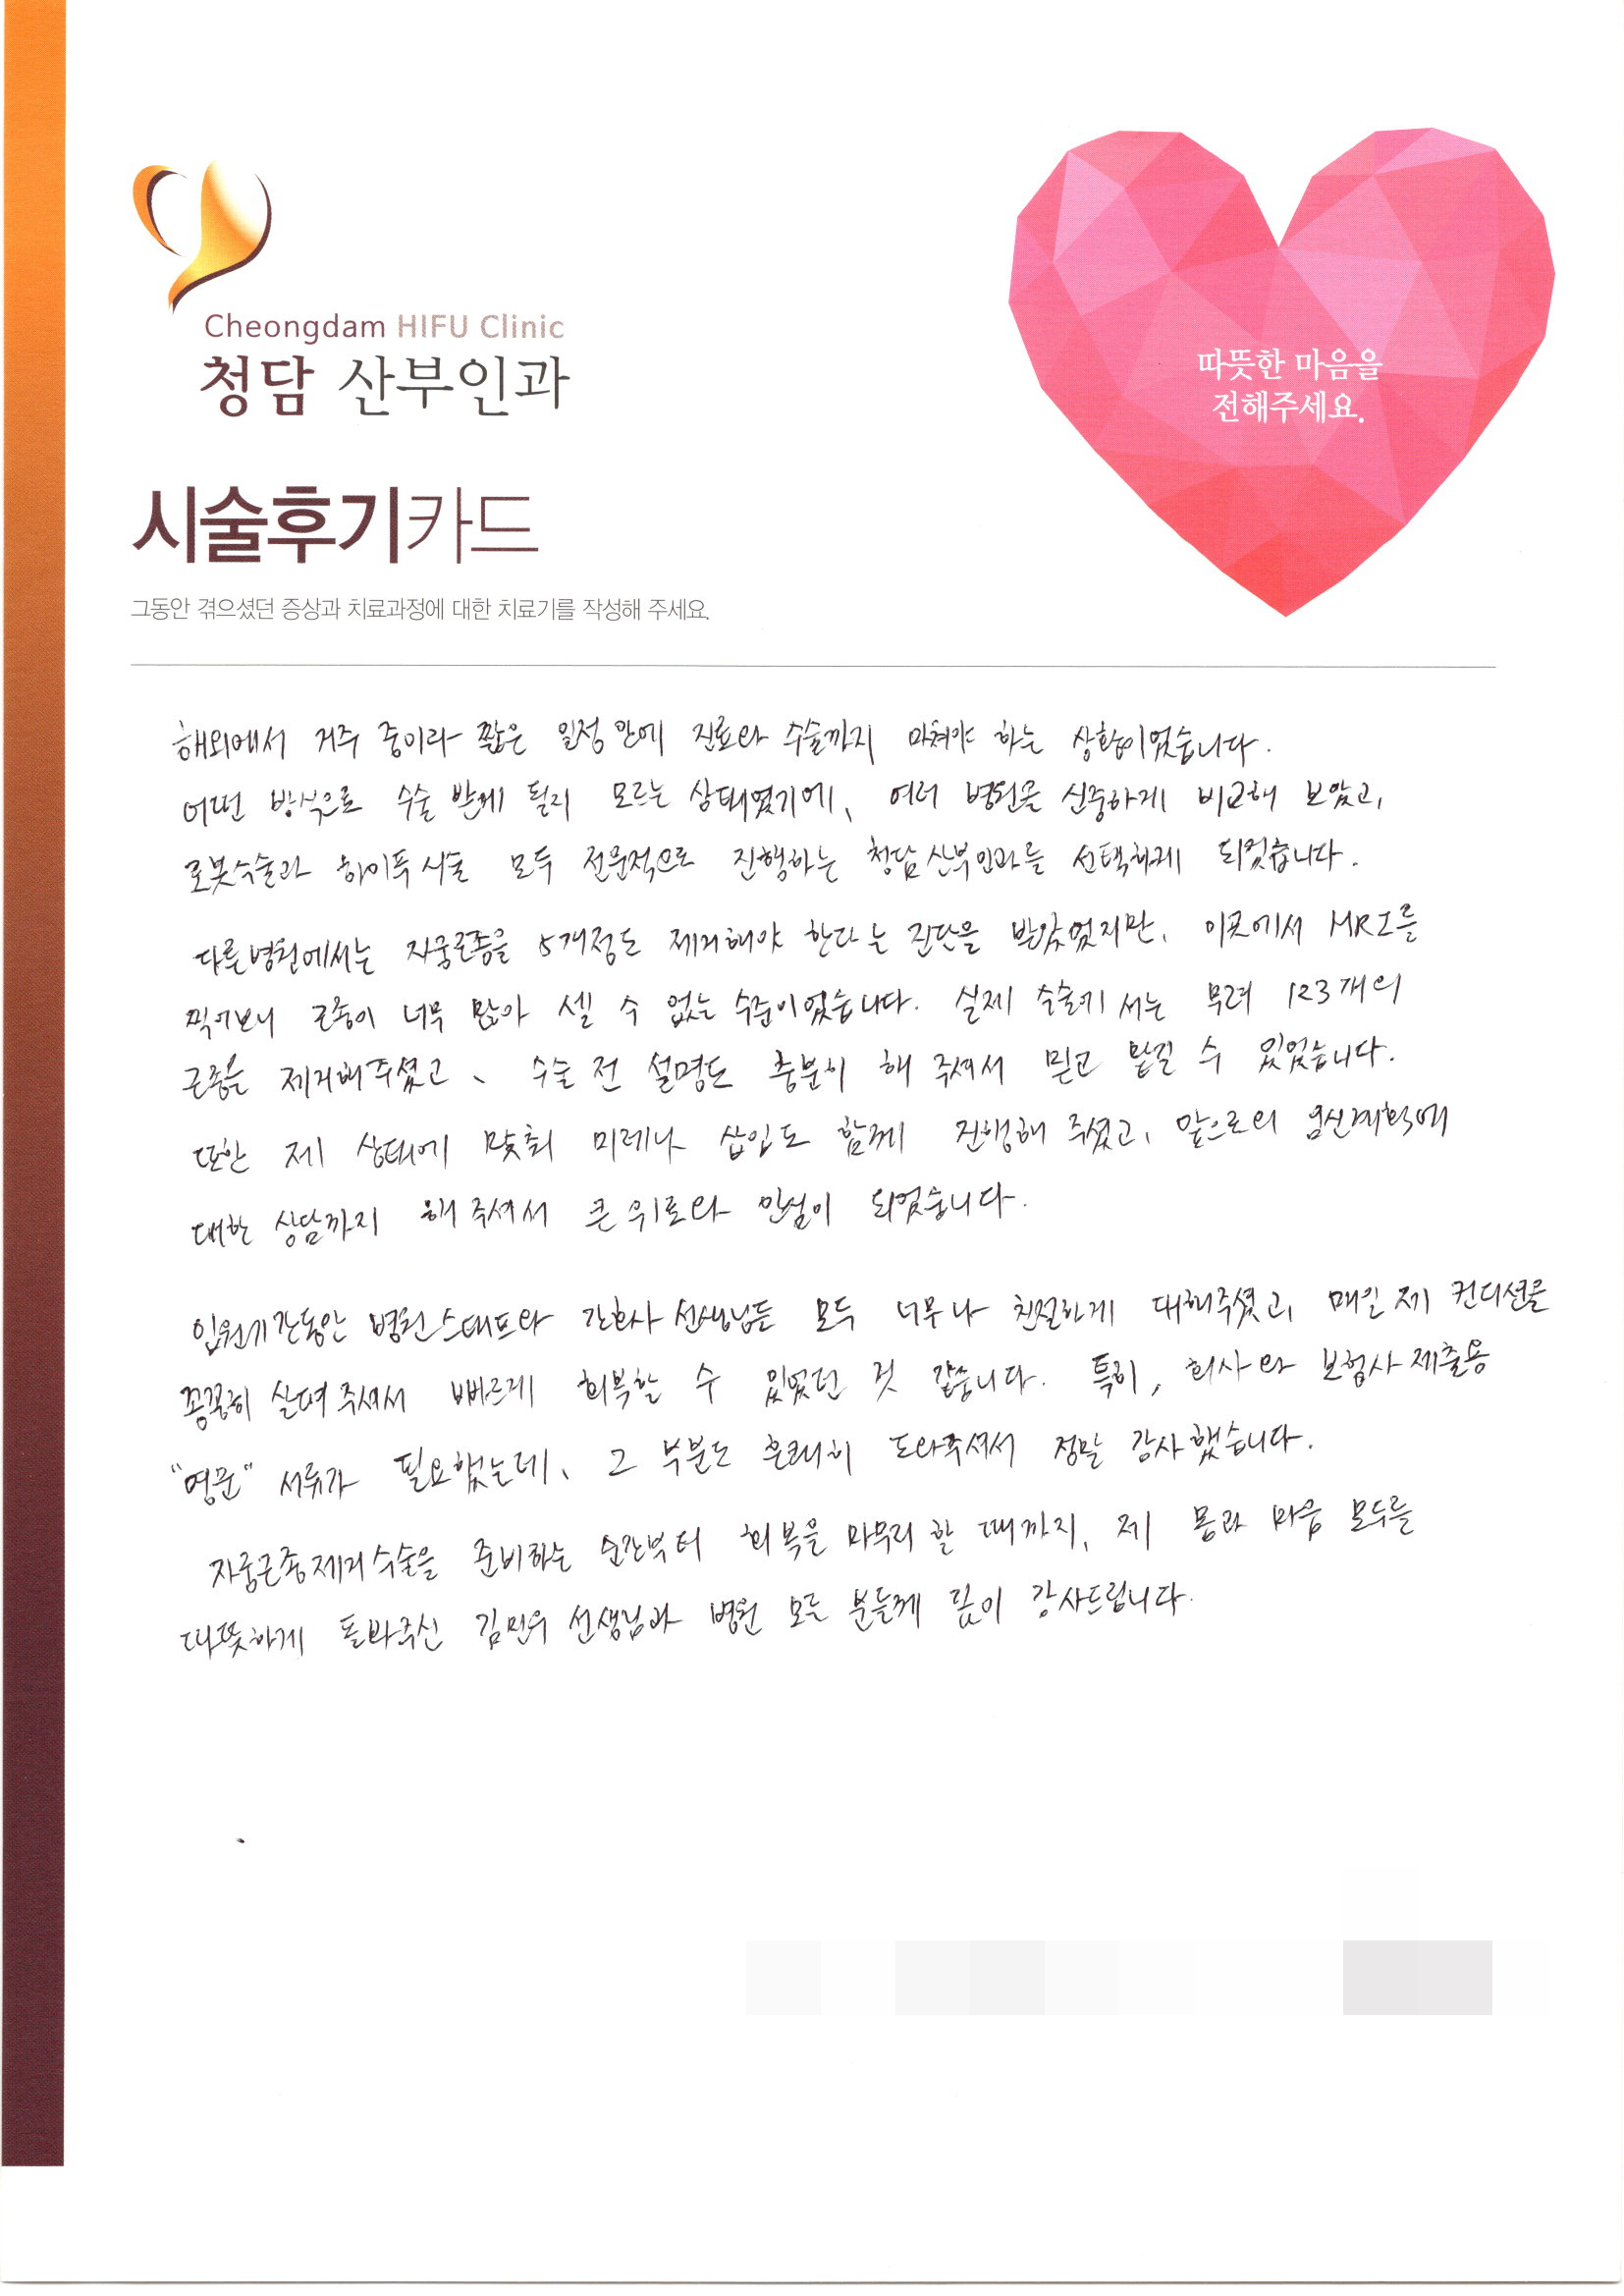 Cheongdam HIFU Clinic
청담 산부인과
따뜻한 마음을
전해주세요.
시술후기카드
그동안 겪으셨던 증상과 치료과정에 대한 치료기를 작성해 주세요.
해외에서 거주 중이라 짧은 일정 안에 진료와 수술까지 마쳐야 하는 상황이었습니다.
어떤 방식으로 수술 받게 될지 모르는 상태였기에, 여러 병원을 신중하게 비교해 보았고,
로봇수술과 하이푸시술 모두 전문적으로 진행하는 청담산부인과를 선택하게 되었습니다.
다른병원에서는 자궁근종을 5개정도 제거해야 한다는 진단을 받았었지만, 이곳에서 MRI를
찍어보니 근종이 너무 많아 셀 수 없는 수준이었습니다. 실제 수술에서는 무려 123개의
근종을 제거해주셨고, 수술 전 설명도 충분히 해 주셔서 믿고 맡길 수 있었습니다.
또한 제 상태에 맞춰 미레나 삽입도 함께 진행해 주셨고, 앞으로의 임신계획에
대한 상담까지 해 주셔서 큰 위로와 안심이 되었습니다.
입원기간동안 병원스태프와 간호사 선생님들 모두 너무나 친절하게 대해주셨고, 매일 제 컨디션을
꼼꼼히 살펴 주셔서 빠르게 회복할 수 있었던 것 같습니다. 특히, 회사와 보험사 제출용
"영문" 서류가 필요했는데, 그 부분도 흔쾌히 도와주셔서 정말 감사했습니다.
자궁근종제거수술을 준비하는 순간부터 회복을 마무리 할 때까지, 제 몸과 마음 모두를
따뜻하게 돌봐주신 김민우 선생님과 병원 모든 분들께 깊이 감사드립니다.